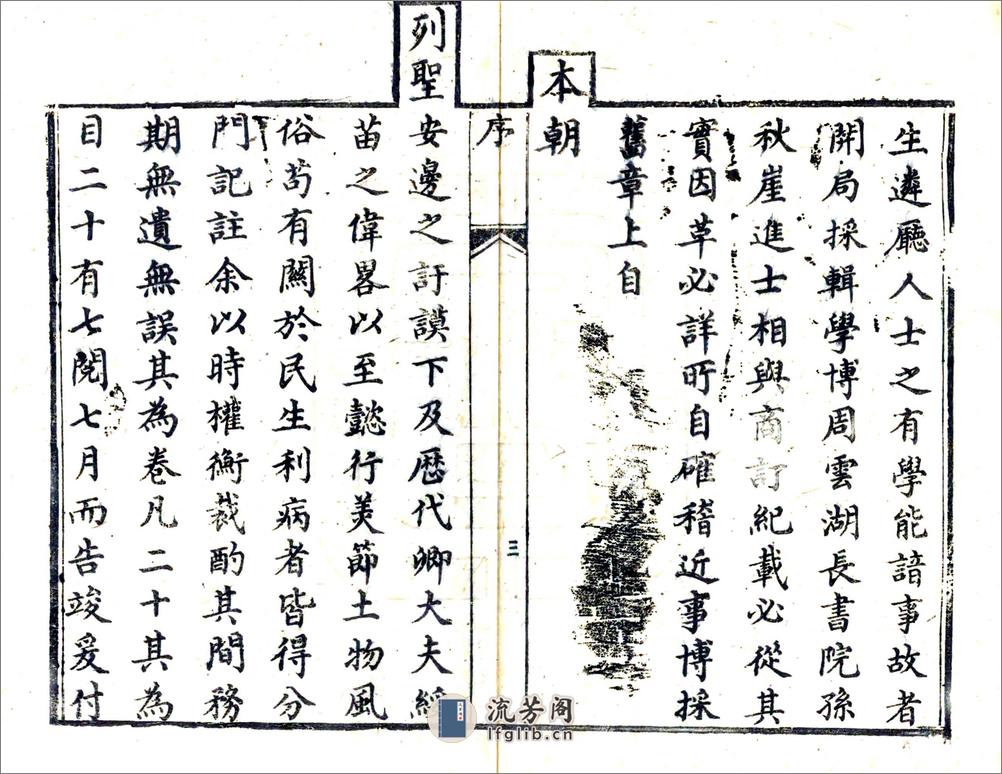 生遴廳人士之有學能諳事故者
開局採輯學博周雲湖長書院孫
秋崖進士相與商訂紀載必從其
實因革必詳所自確稽近事博採
舊章上自
本朝
列聖安邊之訏謨下及歷代卿大夫綏
苗之偉畧以至懿行美節土物風
俗苟有關於民生利病者皆得分
門記註余以時權衡裁酌其間務
期無遺無誤其為卷凡二十其為
目二十有七閱七月而告竣爰付
序
三
流芳阁
lfglib.cn